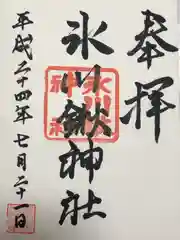 奉拝
氷川鍬神社
平成二十四年七月二十一日